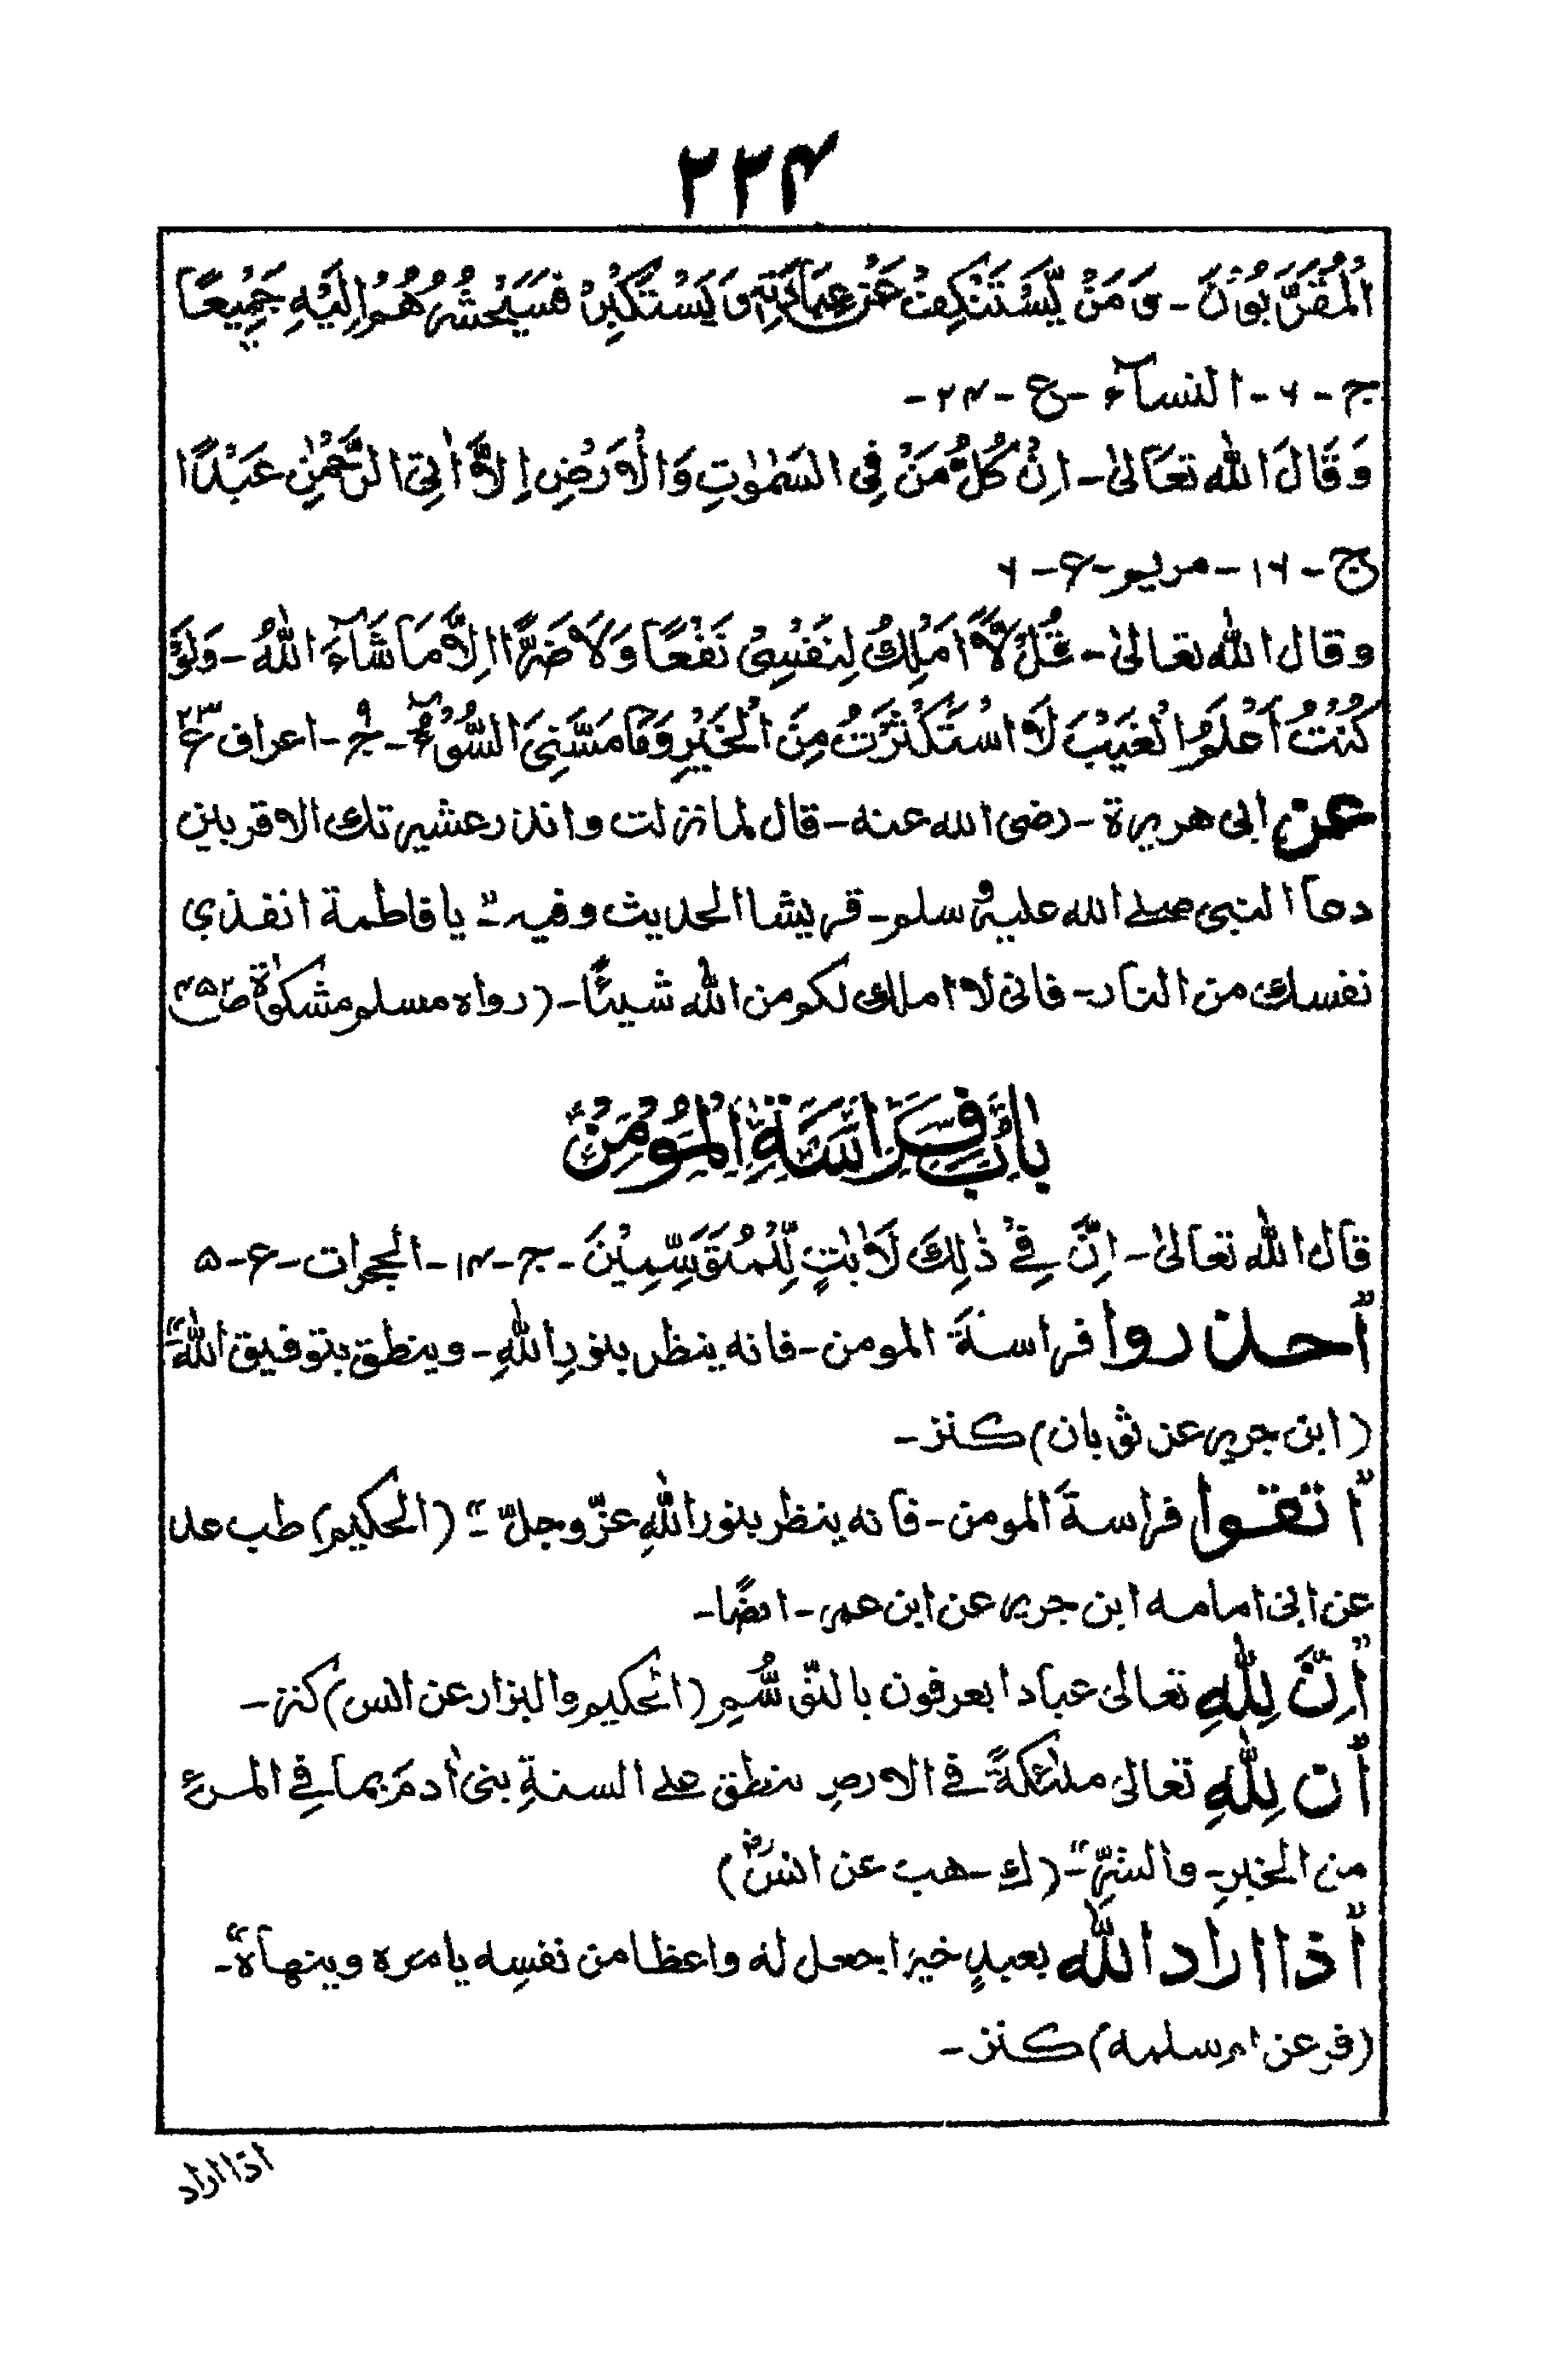 ۲۲۴
الْمُقَرَّبُوْنَ - وَ مَنْ يَّسْتَنْكِفْ عَنْ عِبَادَتِهٖ وَ يَسْتَكْبِرْ فَسَيَحْشُرُهُمْ اِلَيْهِ جَمِيْعًا
ج - ۶ - النسآء - ع - ۲۴ -
وَ قَالَ اللّٰه تعَالىٰ - اِنْ كُلُّ مَنْ فِى السَمٰوٰتِ وَالْاَرْضِ اِلَّا اٰتِى الرَّحْمٰنِ عَبْدًا
ج - ۱۶ - مريم - ع - ۶
و قال اللّٰه تعالىٰ - قُلْ لَّا اَمْلِكُ لِنَفْسِىْ نَفْعًا وَّلَا ضَرًّا اِلَّا مَا شَآءَ اللّٰهُ - وَلَوْ
كُنْتُ اَعْلَمُ الْغَيْبَ لَا سْتَكْثَرْتُ مِنَ الْخَيْرِ وَمَا مَسَّنِىَ السُّوْٓءُ - ج۹ - اعراف ع۲۳
عن ابى هريرة - رضى الله عنه - قال لما نزلت وانذر عشيرتك الاقربين
دعا النبى صلے الله عليه وسلم - قريشا الحديث وفيه - يا فاطمة انفذي
نفسك من النار - فانى لا املك لكم من اللّٰه شيئًا - (رواه مسلم مشكوٰة ص۴۵۲
بَابُ فِرَاسَةِ الْمُؤْمِنْ
قال اللّٰه تعالىٰ - اِنَّ فِىْ ذٰلِكَ لَاٰيٰتٍ لِّلْمُتَوَسِّمِيْنَ - ج - ۱۴ - الحجرات - ع - ۵
"احذروا فراسةَ المومن - فانه ينظر بنورِ اللّٰهِ - وينطق بتوفيق اللّٰه"
(ابن جرير عن ثوبان) كنز -
"اتقوا فراسةَ المومن - فانه ينظر بنور اللّٰهِ عزّوجلّ" - (الحكيم) طب عد
عن ابى امامه ابن جرير عن ابن عمر - ايضًا -
"اِنَّ لِلّٰهِ تعالىٰ عبادا يعرفون بالتوسُّمِ (الحكيم والبزار عن انس) كنز -
"ان لِلّٰهِ تعالىٰ ملٰئكةً فے الارضِ ينطق علے السنةِ بنى اٰدمَ بما فِى المرءِ
من الخيرِ - والشرِّ" - (ك - هب عن انسؓ)
"اذا اراد اللّٰه بعبدٍ خيرا جعل له واعظا من نفسِه يامره وينهاه" -
(فر عن ام سلمه) كنز -
اذا اراد